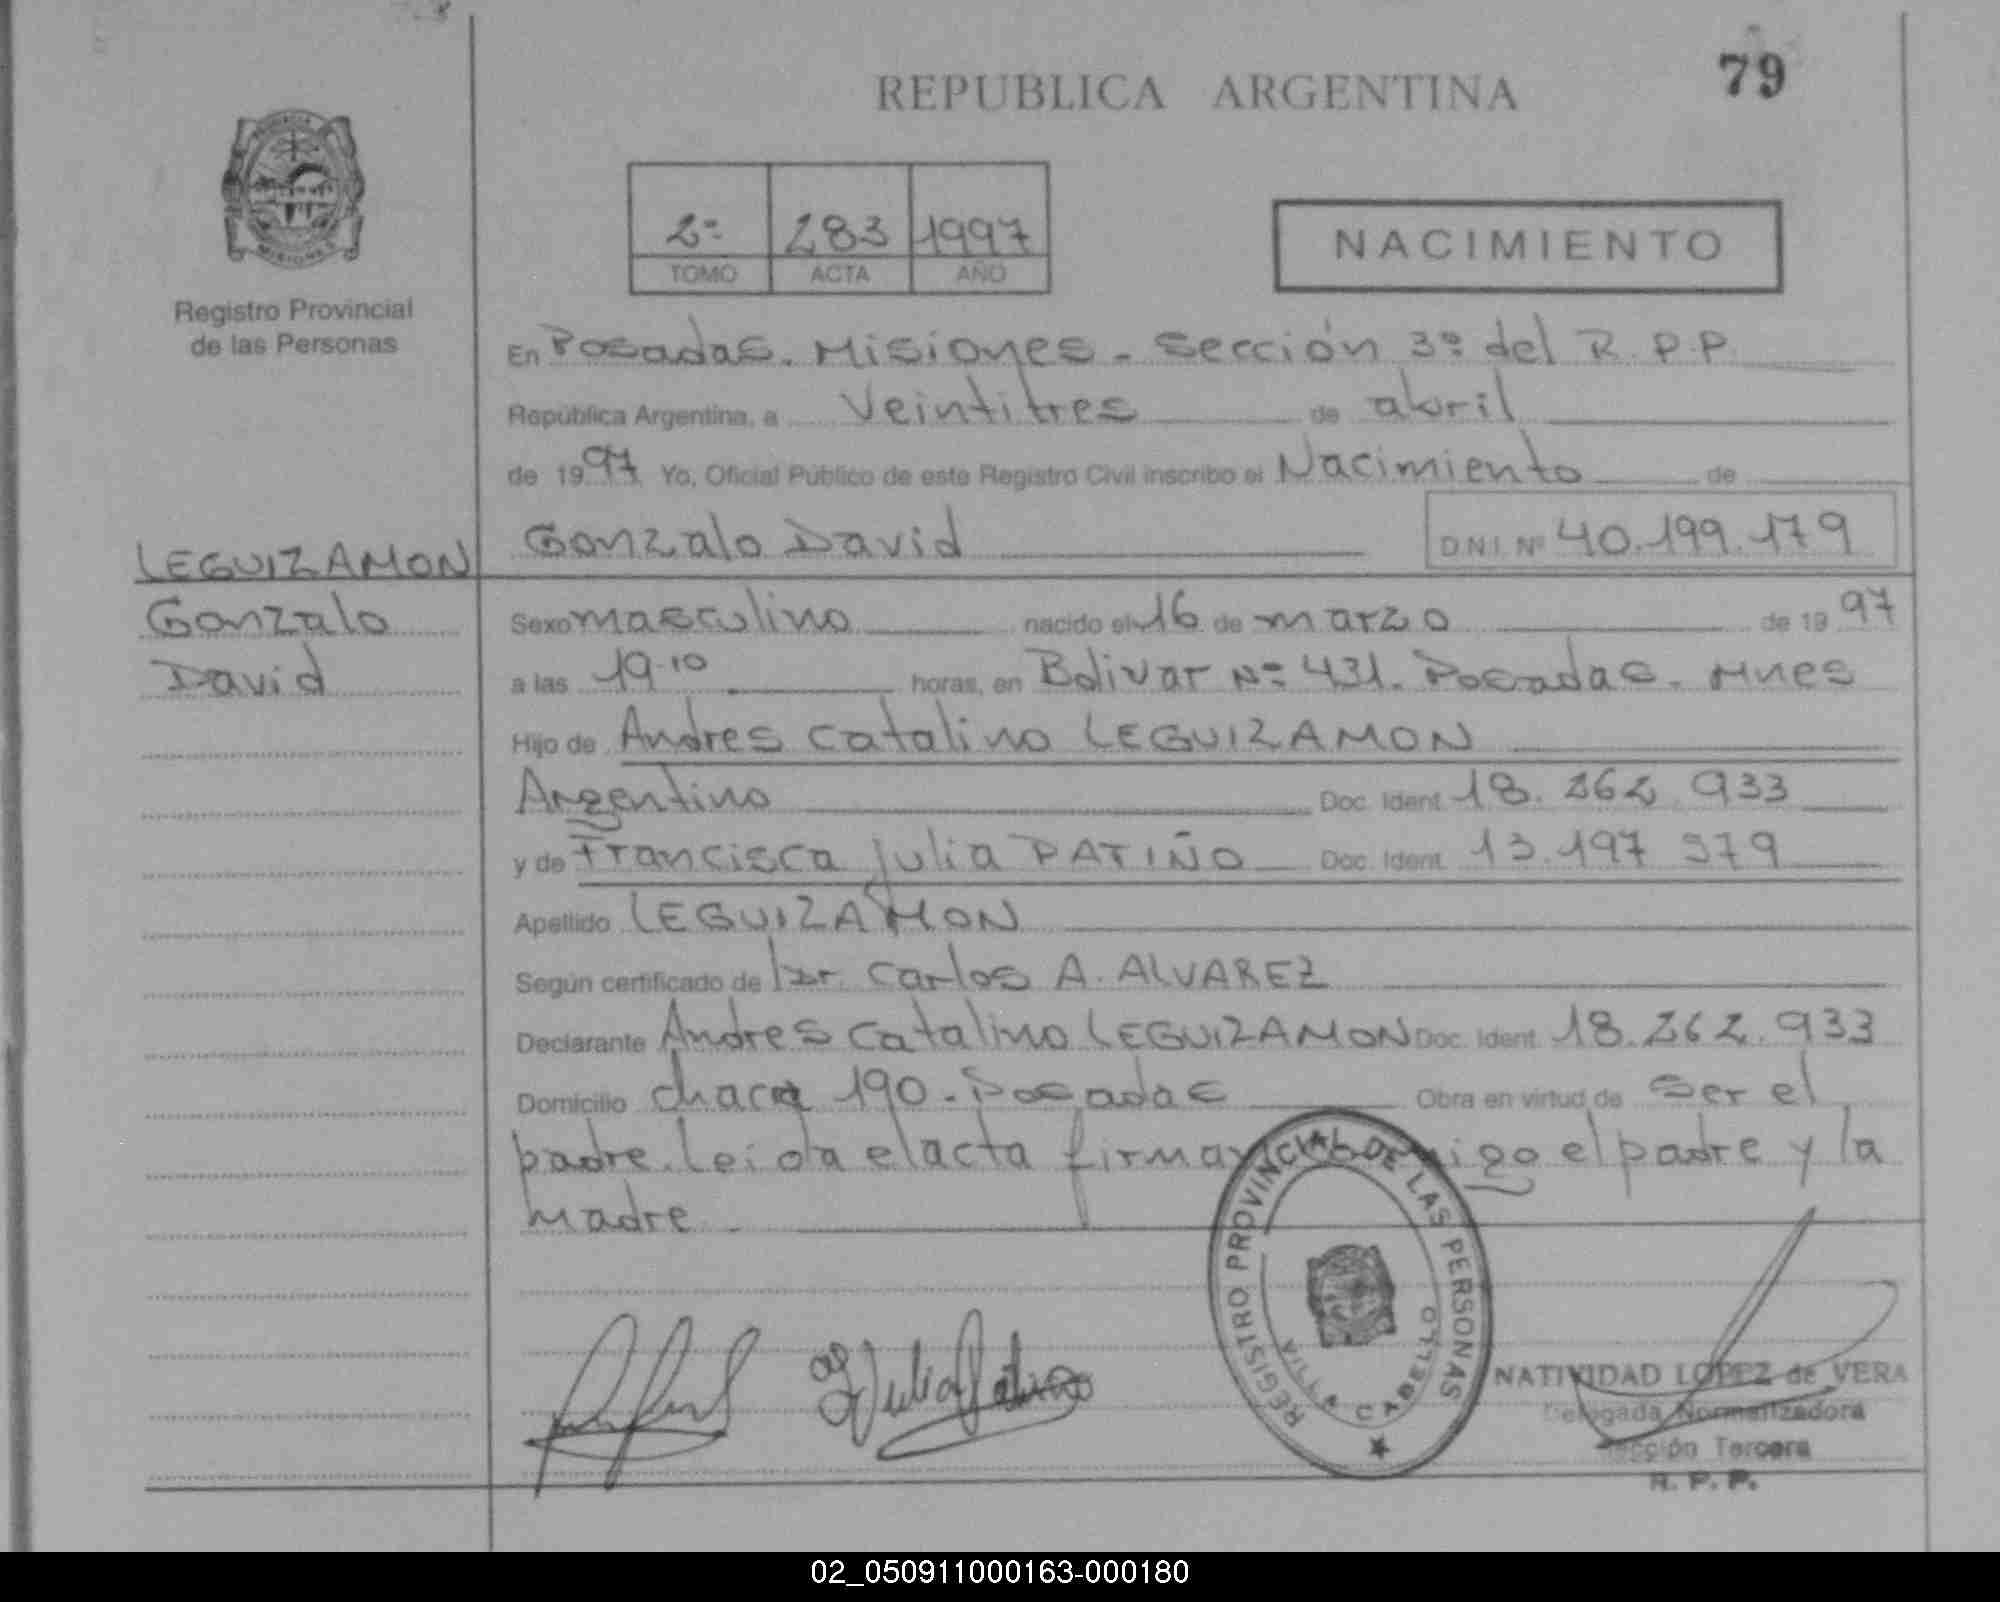 79
REPUBLICA ARGENTINA
PROVINCIA
MISIONES
Registro Provincial
de las Personas
2º 283 1997
TOMO ACTA AÑO
NACIMIENTO
En Posadas. Misiones - Sección 3º del R.P.P
República Argentina, a Veintitres de abril
de 1997 Yo, Oficial Público de este Registro Civil inscribo el Nacimiento de
Gonzalo David D.N.I. Nº 40.199.179
LEGUIZAMON
Gonzalo
David
Sexo masculino nacido el 16 de marzo de 1997
a las 19.10 horas, en Bolivar Nº 431. Posadas. Mnes
Hijo de Andres Catalino LEGUIZAMON
Argentino Doc. Ident. 18.262.933
y de Francisca Julia PATIÑO Doc. Ident. 13.197 979
Apellido LEGUIZAMON
Según certificado de Dr. Carlos A. ALVAREZ
Declarante Andres Catalino LEGUIZAMON Doc. Ident. 18.262.933
Domicilio chacra 190. Posadas Obra en virtud de ser el
padre. Leida el acta firman conmigo el padre y la
madre.
Julia Patiño
REGISTRO PROVINCIAL DE LAS PERSONAS
VILLA CABELLO
NATIVIDAD LOPEZ de VERA
Delegada Normalizadora
Sección Tercera
R. P. P.
02_050911000163-000180